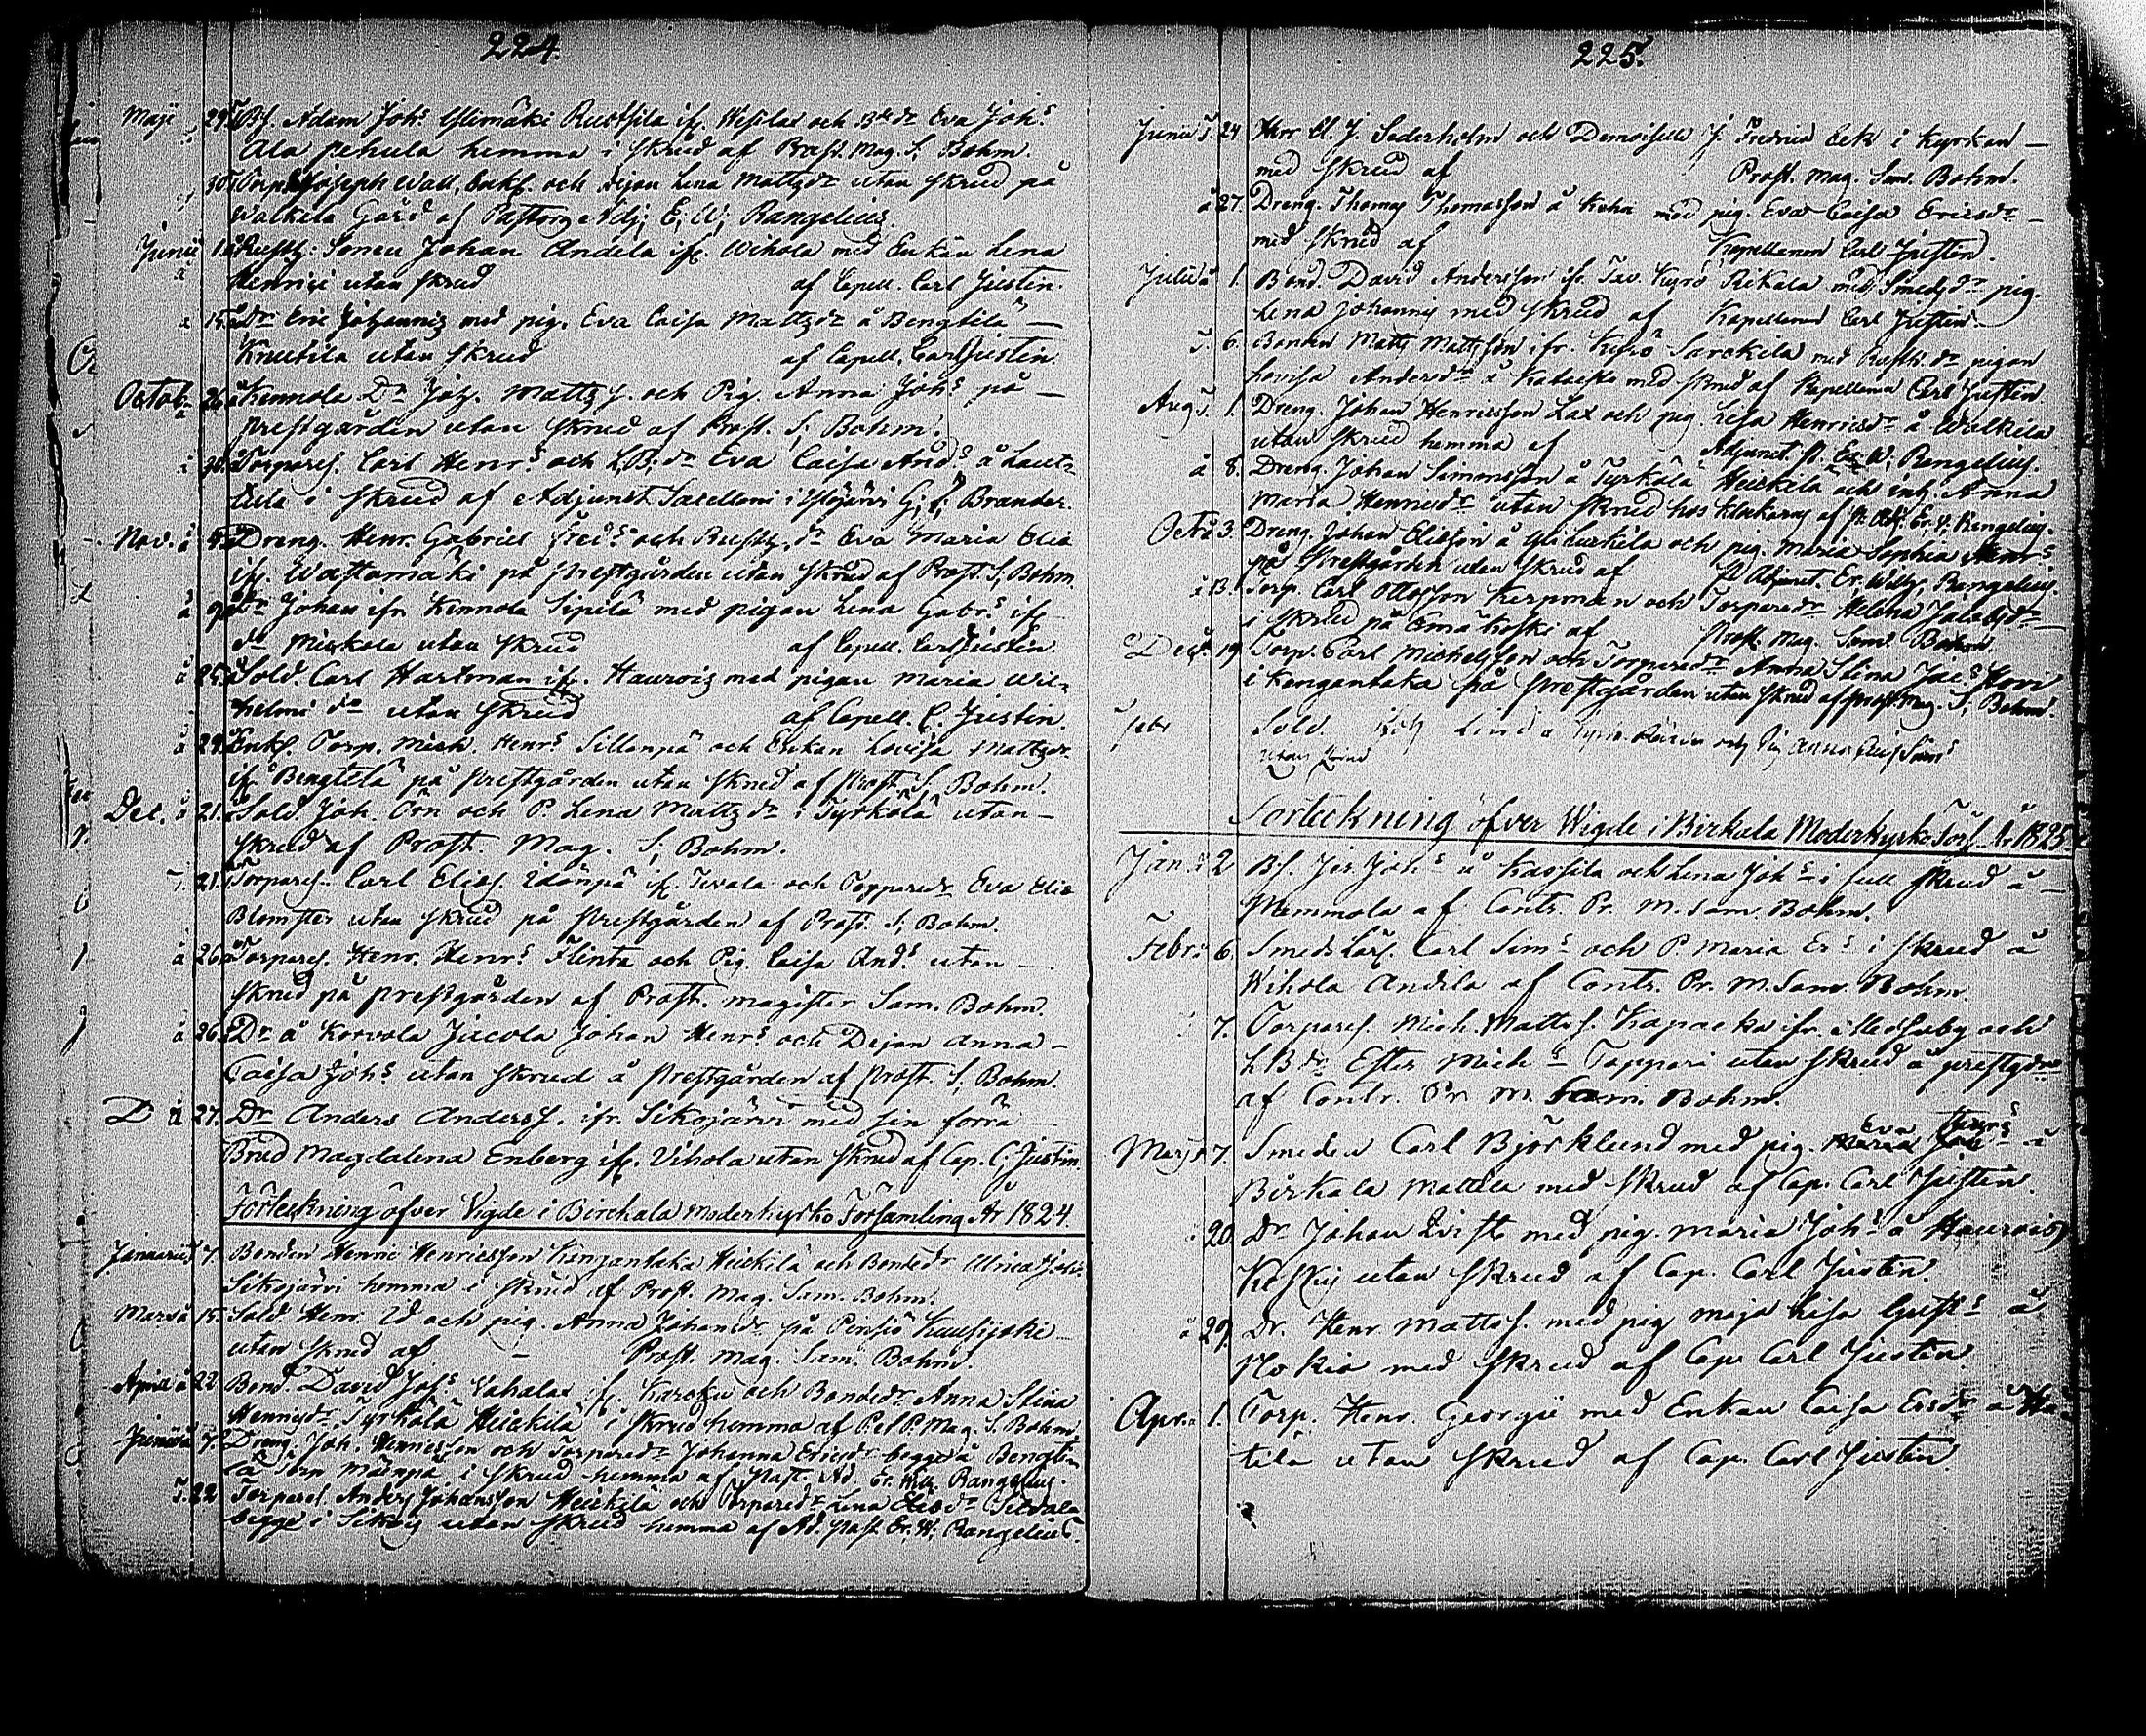 224.
Maji 29 BS. Adam Johs Ylimäki Ruotsila ifr. Wesilax och Bdr Eva Johs
Ala pehula hemma i skrud af Prost. Mag. S. Bohm.
30 Joseph Wall, Enkl. och Pijan Lena Mattzdr utan skrud på
Walkila Gård af Pastors Adj. E. W. Rangelius
Junii 1 Rustz: Sonen Johan Andela ifr. Wihola med Enkan Lena
Henrici utan skrud af Capell. Carl Justin.
á 15 Dr Eric Johannis med pig. Eva Caisa Mattzdr å Bengtilä
Knutila utan skrud af Capell. Carl Justin.
Octob. á 26 Kennola Dr Joh. Mattz S. och Pig. Anna Johs på
prestgården utan skrud af Prost. S. Bohm.
á 30 Torpares. Carl Henrs och LB. dr Eva Caisa Ands å Laut-
tula i skrud af Adjunct. Sacellani i Ylöjärvi G. Brander.
Nov. á 5 Dreng. Henr. Gabriel Freds och Rustz. dr Eva Maria Elia
ifr. Wattamäki på prestgården utan skrud af Prost. S. Bohm.
á 9 Dr Johan ifr Kennola Sipilä med pigan Lena Gabrs ifr.
do Mickola utan skrud af Capell. Carl Justin.
á 25 Sold. Carl Hartman ifr. Haurois med pigan Maria Wil-
helmi dr utan skrud af Capell. C. Justin.
á 29 Enkl. Torp. Mich. Henrs Sillanpä och Enkan Lovisa Mattzdr
ifr Bengtilä på prestgården utan skrud af Prost. S. Bohm.
Dec. á 21. Sold. Joh. Örn och P. Lena Mattzdr i Tyrkölä utan
skrud af Prost. Mag. S. Bohm.
T. 21. Torpares. Carl Elias. Idänpä ifr. Tevala och Torparedr Eva Elia
Blomster utan skrud på prestgården af Prost. S. Bohm.
á 26 Torpares. Henr. Henrs Flinta och Pig. Caisa Ands utan
skrud på prestgården af Prost. magister Sam. Bohm.
á 26 Dr å Korvola Jucola Johan Henrs och Dejan Anna
Caisa Johs utan skrud å prestgården af Prost. S. Bohm.
D á 27. Dr Anders Anderss. ifr. Siksjärvi med sin förra
Brud Magdalena Enberg ifr. Vihola utan skrud af Cap. C. Justin
Förteckning öfver Vigde i Birckala Moderkyrko Församling År 1824.
Januarii 7. Bonden Henric Henricsson Kangantaka Heickilä och Bondedr Ulrica Johs
Siksjärvi hemma i skrud af Prost. Mag. Sam. Bohm.
Mars á 15. Sold. Henr. Id och pig. Anna Johansdr på Pinsiö Kuusijoki
utan skrud af Prost. Mag. Sam. Bohm.
April á 22 Bond. David Johs Vahalax ifr. Karcku och Bondedr Anna Stina
Henricsdr Tyrkölä Heickilä i skrud hemma af P. Mag. S. Bohm.
Junii á 7. Dreng. Joh. Henricsson och Torparedr Johanna Ericsdr begge å Bengtis-
la Torp Mäenpä i skrud hemma af Past. Ad. Er. Wilh. Rangelius.
T. 22 Torpares. Anders Johansson Heickilä och Torparedr Lena Eliasdr Sitvala
begge i Sikojs utan skrud hemma af Ad. past. Er. W. Rangelius.
225.
Junii T. 24 Herr Cl. J. Sederholm och Demoiselle J. Fredrica Eek i Kyrkan
med skrud af Prost. Mag. Sam. Bohm.
á 27. Dreng. Thomas Thomasson å Kohri med pig. Eva Caisa Ericsdr
med skrud af Kapellanen Carl Justen.
Julii á 1. Bond. David Andersson ifr. Tav. Kyrö Rikala med Smedsdr pig.
Lena Johannis med skrud af Kapellanen Carl Justen
T. 6. Bonden Matts Mattsson ifr. Kyrö Sarckila med Rusth. dr pigan
Lovisa Andersdr å Kataisto med skrud af Kapellanen Carl Justen
Aug. T. 1. Dreng. Johan Henricsson Lax och pig. Lisa Henricsdr å Walkila
utan skrud hemma af Adjunct. P. Er. W. Rangelius.
á 8. Dreng. Johan Simonsson å Tyrkölä Heickilä och inh. Anna
Maria Henricsdr utan skrud hos klockarns af P. Adj. Er. W. Rangelius.
Oct. á 3. Dreng. Johan Eliasson å Yliluckila och pig. Maria Sophia Henrs
på Prestgården utan skrud af P. Adjunct. Er. Wilh. Rangelius.
á 13. Torp. Carl Ottosson Kerpman och Torparedr Helena Jacobsdr
i skrud på Emäkoski af Prost. Mag. Sam. Bohm
Dec. á 19. Torp. Carl Michelsson och Torparedr Anna Stina Jacs Horri
i Kangantaka på Prestgården utan skrud af Prost Mag. S. Bohm.
Sold. Lind och Pig Anna Sims
utan skrud
Förteckning öfver Wigde i Birkala Moderkyrko Förs. År 1825
Jan. á 2 BS. Jos. Johs å Kassila och Lena Johs i full skrud å
Mommola af Contr. Pr. M. Sam. Bohm.
Febr. á 6. Smeds Lärl. Carl Sims och P. Maria Ers i skrud å
Wihola Andila af Contr. Pr. M. Sam. Bohm.
7. Torpares. Mich. Matts S. Haapaoka ifr. Messuby och
LB dr Ester Michs Toppari utan skrud å prestgdn
af Contr. Pr. M. Sam. Bohm.
Mars á 7. Smeden Carl Björklund med pig. Eva Henrs å
Birkala Mattila med skrud af Cap. Carl Justin.
20. Dr Johan Qvist med pig. Maria Johs å Haurois
Koskis utan skrud af Cap. Carl Justin.
á 29. Dr. Henr. Matts S. med pig Maja Lisa Gusts å
Nokia med skrud af Cap. Carl Justin.
Apr. á 1. Torp. Henr. Georgii med Enkan Caisa Ersdr å Ha-
tila utan skrud af Cap. Carl Justin.